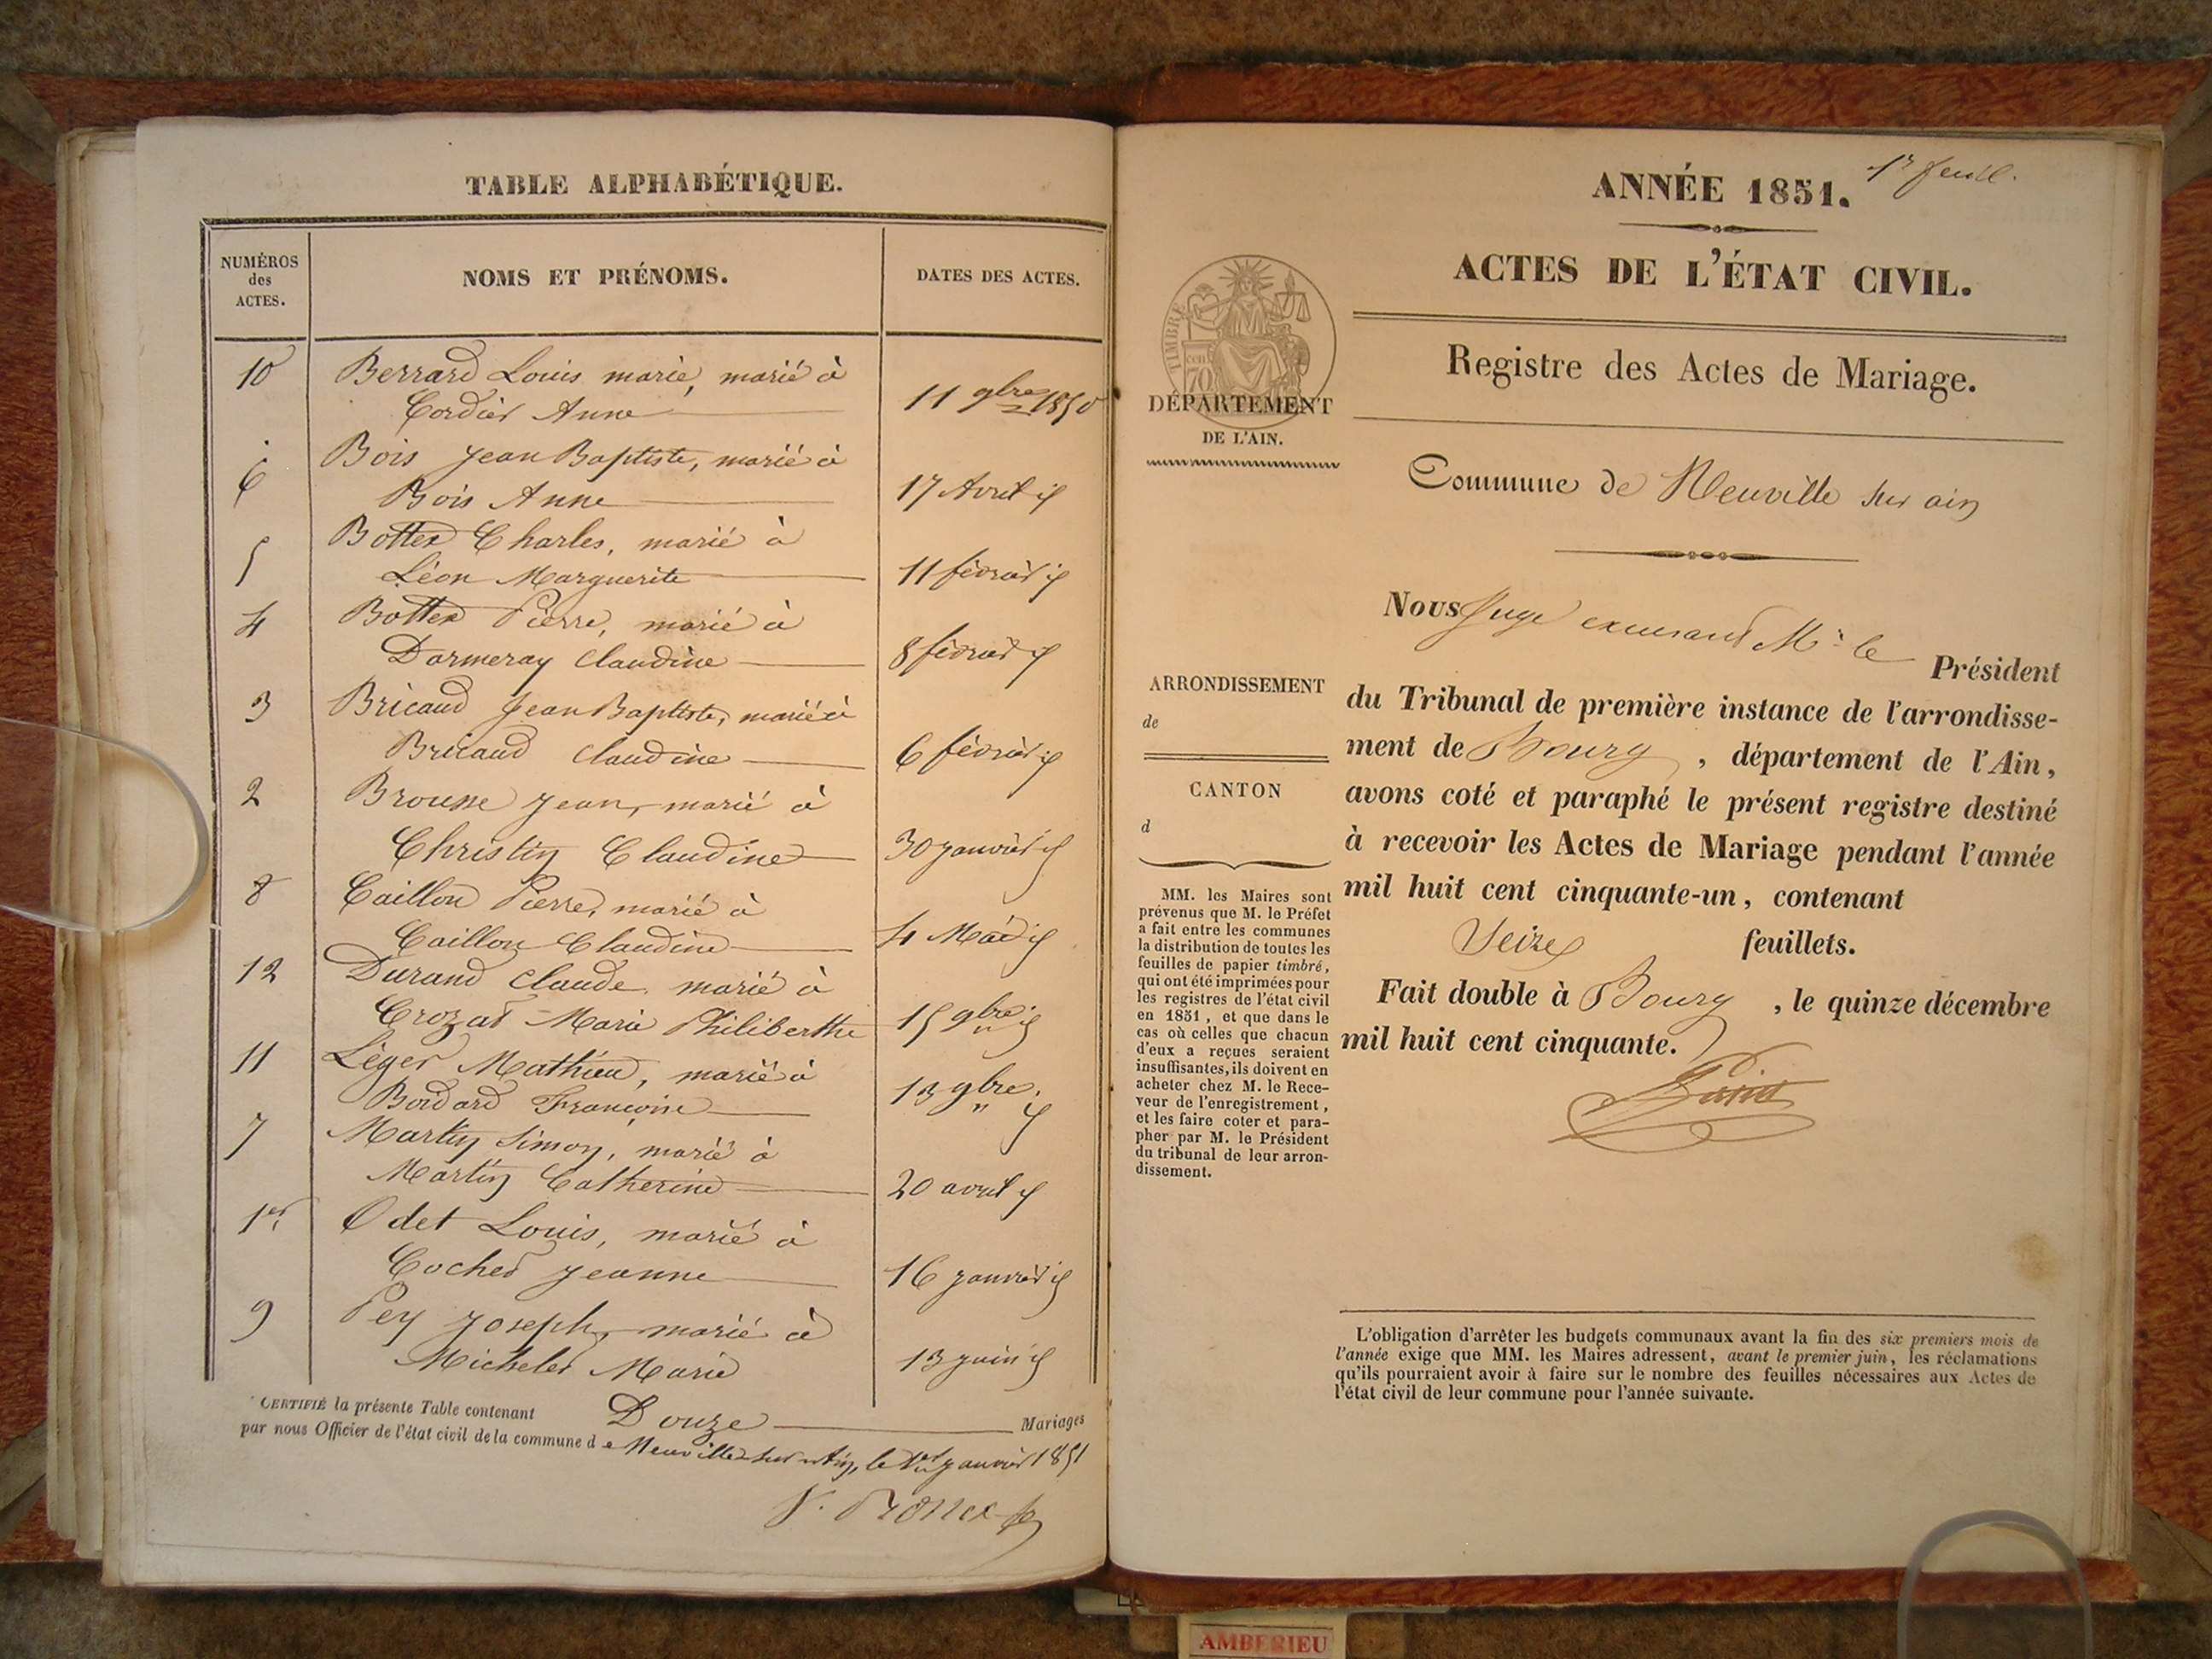 TABLE ALPHABÉTIQUE.
NUMÉROS
des
ACTES.
NOMS ET PRÉNOMS.
DATES DES ACTES.
10 Berrard Louis marie, marié à
Cordier Anne 11 9bre 1850
6 Bois Jean Baptiste, marié à
Bois Anne 17 Avril id
5 Bottex Charles, marié à
Léon Marguerite 11 février id
4 Bottex Pierre, marié à
Dormeray Claudine 8 février id
3 Bricaud Jean Baptiste, marié à
Bricaud Claudine 6 février id
2 Brousse Jean, marié à
Christin Claudine 30 janvier id
8 Caillon Pierre, marié à
Caillon Claudine 4 Mai id
12 Durand Claude marié à
Crozat Marie Philiberthe 15 9bre id
11 Léger Mathieu, marié à
Boidard Françoise 13 9bre id
7 Martin Simon, marié à
Martin Catherine 20 avril id
1er Odet Louis, marié à
Cochet Jeanne 16 janvier id
9 Pey Joseph, marié à
Michelet Marie 13 juin id
CERTIFIÉ la présente Table contenant Douze Mariages
par nous Officier de l'état civil de la commune de Neuville sur Ain, le 1er janvier 1851
1r feuil.
ANNÉE 1851.
ACTES DE L'ÉTAT CIVIL.
Registre des Actes de Mariage.
TIMBRE
cen
70
DÉPARTEMENT
DE L'AIN.
Commune de Neuville sur ain
Nous Juge excusant Mr le Président
du Tribunal de première instance de l'arrondisse-
ment de Bourg, département de l'Ain,
avons coté et paraphé le présent registre destiné
à recevoir les Actes de Mariage pendant l'année
mil huit cent cinquante-un, contenant
Seize feuillets.
Fait double à Bourg, le quinze décembre
mil huit cent cinquante.
ARRONDISSEMENT
de
CANTON
d
MM. les Maires sont
prévenus que M. le Préfet
a fait entre les communes
la distribution de toutes les
feuilles de papier timbré,
qui ont été imprimées pour
les registres de l'état civil
en 1851, et que dans le
cas où celles que chacun
d'eux a reçues seraient
insuffisantes, ils doivent en
acheter chez M. le Rece-
veur de l'enregistrement,
et les faire coter et para-
pher par M. le Président
du tribunal de leur arron-
dissement.
L'obligation d'arrêter les budgets communaux avant la fin des six premiers mois de
l'année exige que MM. les Maires adressent, avant le premier juin, les réclamations
qu'ils pourraient avoir à faire sur le nombre des feuilles nécessaires aux Actes de
l'état civil de leur commune pour l'année suivante.
AMBERIEU